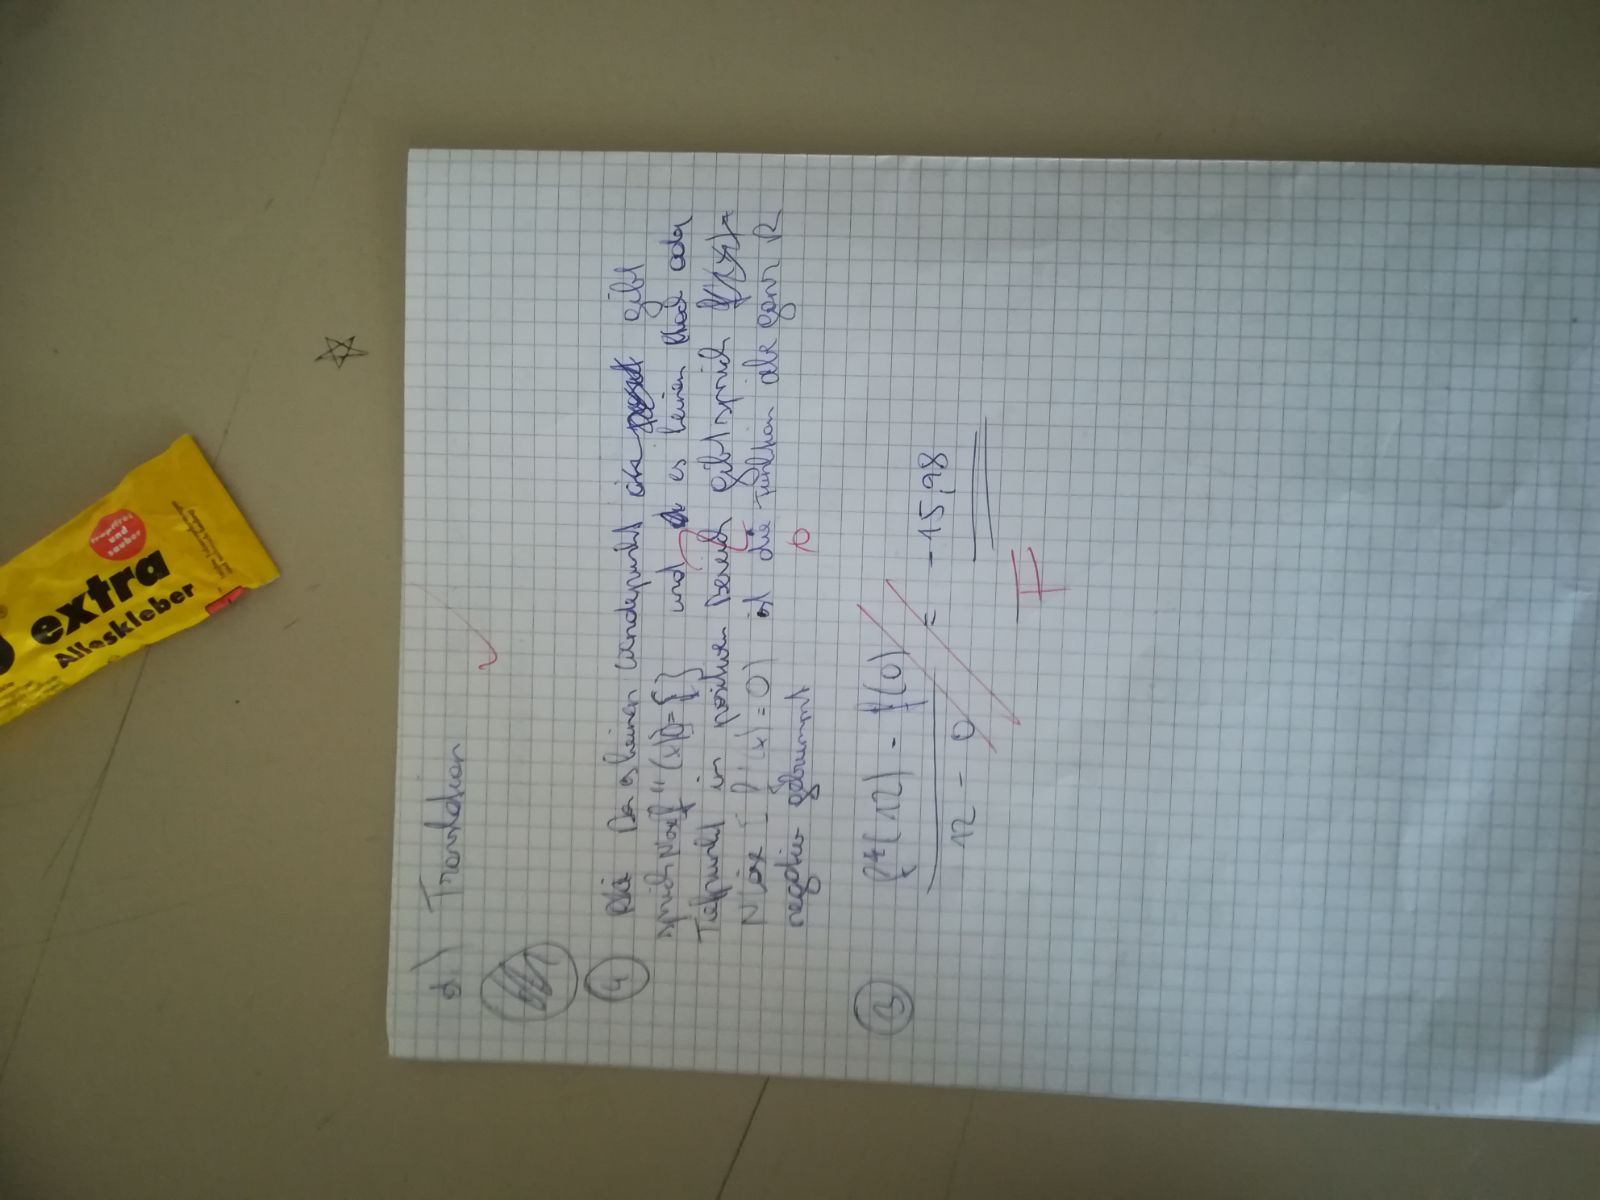 extra
Alleskleber
tropffrei
und
sauber
d.) Translation
4 Da es keinen Wendepunkt gibt
sprich f''(x)= { } und es keinen Hoch oder
Tiefpunkt im positiven Bereich gibt sprich
(x) = 0) ist die Funktion ganz R
negativ gekrümmt
3 (12) - f(0)
12 - 0
= -15,98
F